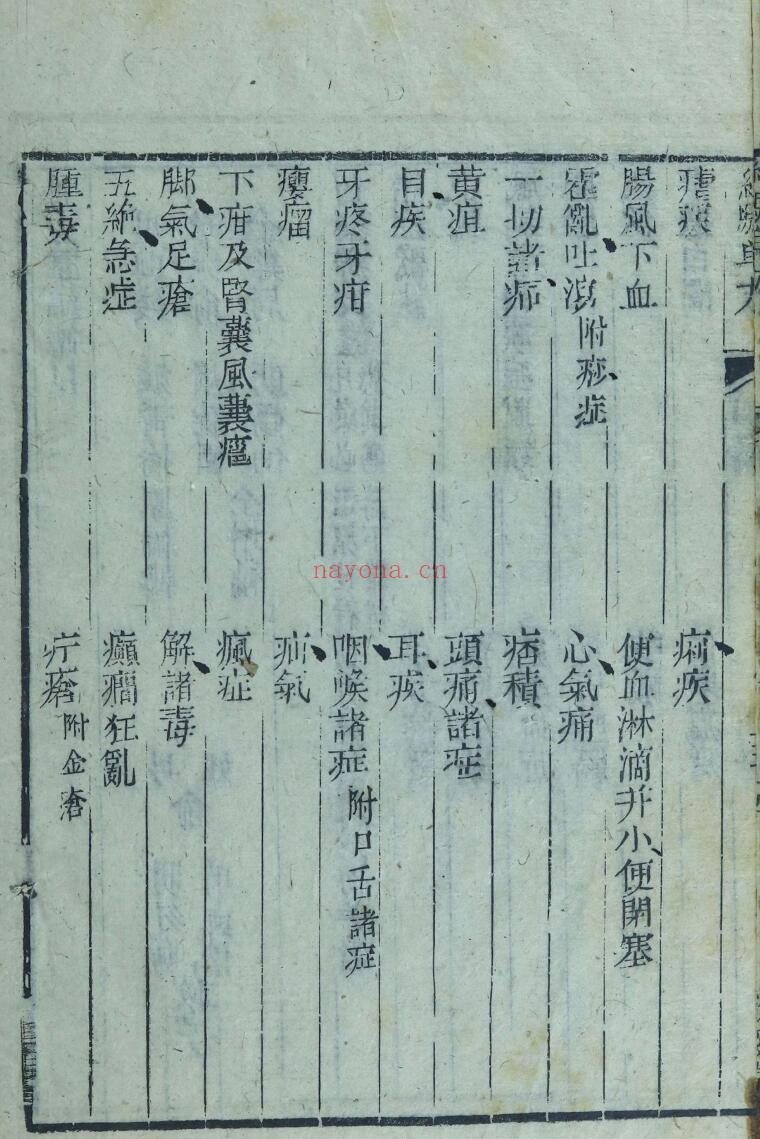 瘧疾
痢疾
腸風下血
便血淋滴并小便閉塞
霍亂吐瀉 附痧症
心氣痛
一切諸痧
痞積
黄疸
頭痛諸症
目疾
耳疾
牙疼牙疳
咽喉諸症 附口舌諸症
癭瘤
疝氣
下疳及腎囊風囊癰
瘋症
脚氣足瘡
解諸毒
五絶急症
癲癎狂亂
腫毒
疔瘡 附金瘡
nayona.cn